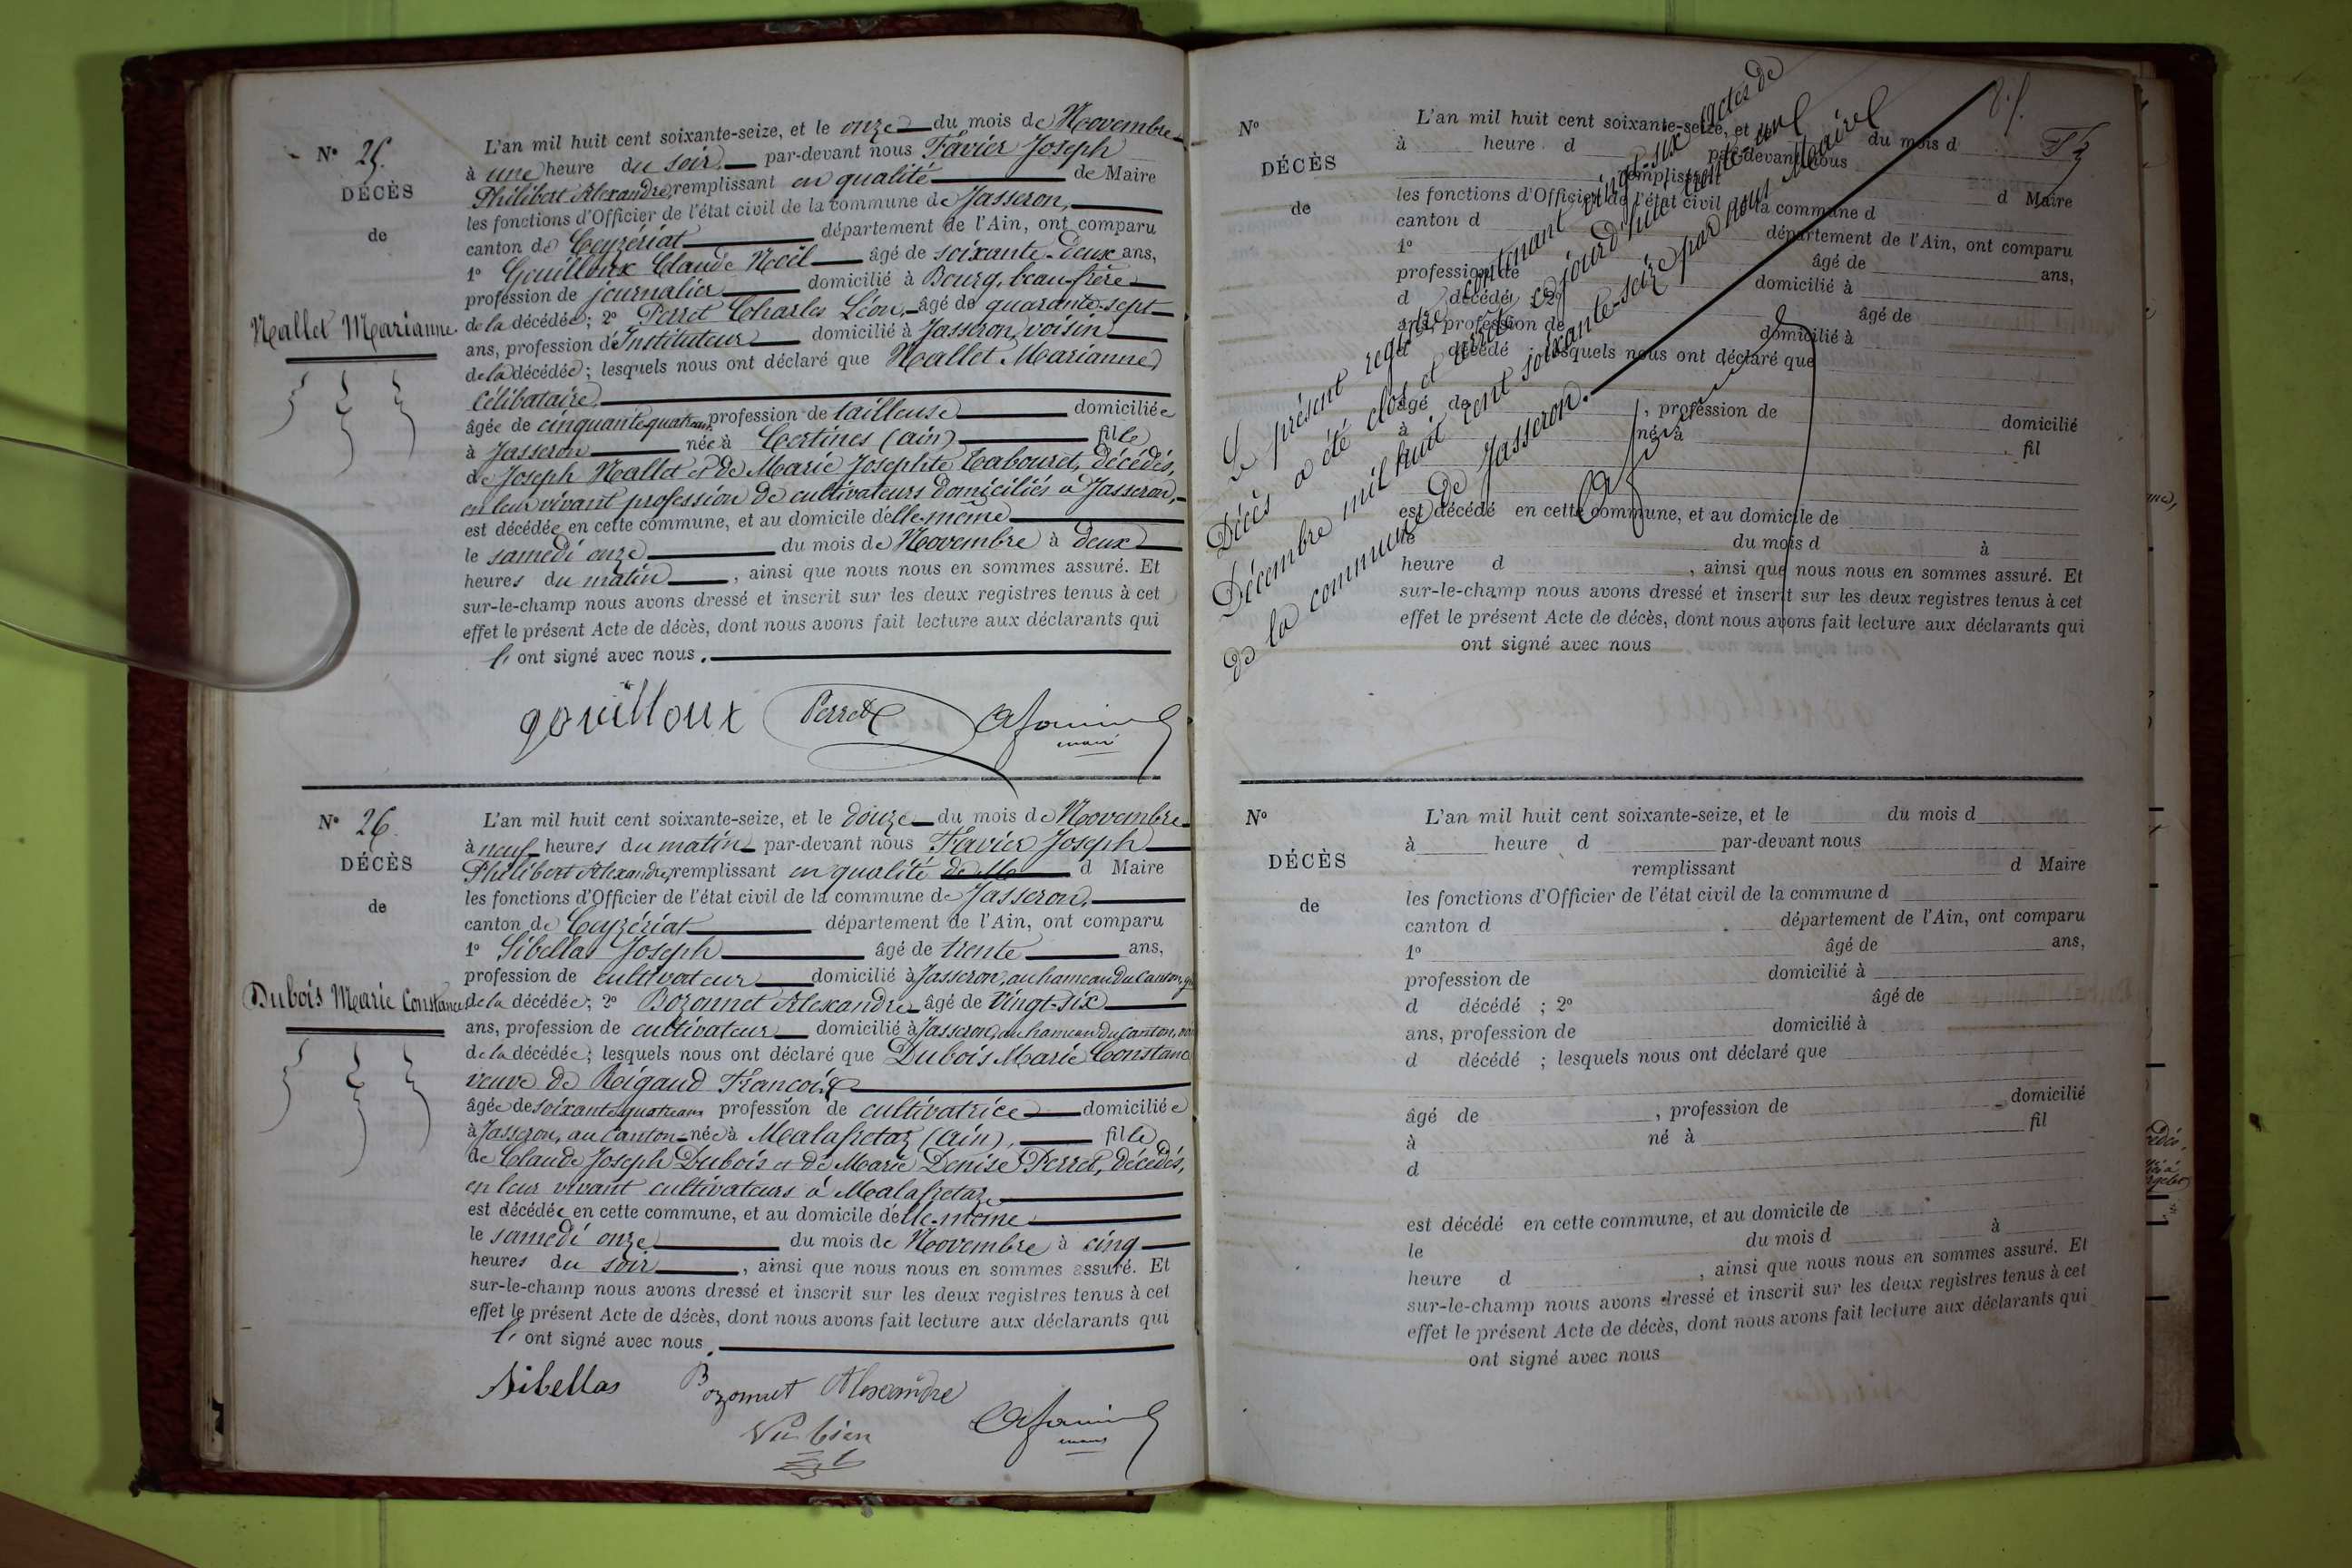 N° 25.
DÉCÈS
de
Nallet Marianne.
L'an mil huit cent soixante-seize, et le onze du mois de Novembre
à une heure du soir par-devant nous Favier Joseph
Philibert Alexandre, remplissant en qualité de Maire
les fonctions d'Officier de l'état civil de la commune de Jasseron,
canton de Ceyzériat département de l'Ain, ont comparu
1° Gouilloux Claude Noël âgé de soixante-deux ans,
profession de journalier domicilié à Bourg, beau-frère
de la décédée; 2° Perret Charles Léon, âgé de quarante-sept
ans, profession d'Instituteur domicilié à Jasseron, voisin
de la décédée; lesquels nous ont déclaré que Nallet Marianne
célibataire
âgée de cinquante-quatre ans, profession de tailleuse domiciliée
à Jasseron née à Certines (ain) fille
de Joseph Nallet et de Marie Josephte Tabouret, décédés,
en leur vivant profession de cultivateurs domiciliés à Jasseron,
est décédée en cette commune, et au domicile d'elle-même
le samedi onze du mois de Novembre à deux
heures du matin, ainsi que nous nous en sommes assuré. Et
sur-le-champ nous avons dressé et inscrit sur les deux registres tenus à cet
effet le présent Acte de décès, dont nous avons fait lecture aux déclarants qui
l'ont signé avec nous.
gouilloux Perret
N° 26.
DÉCÈS
de
Dubois Marie Constance
L'an mil huit cent soixante-seize, et le douze du mois de Novembre
à neuf heures du matin par-devant nous Favier Joseph
Philibert Alexandre, remplissant en qualité d Maire
les fonctions d'Officier de l'état civil de la commune de Jasseron,
canton de Ceyzériat département de l'Ain, ont comparu
1° Sibellas Joseph âgé de trente ans,
profession de cultivateur domicilié à Jasseron, au hameau du Canton,
de la décédée; 2° Bozonnet Alexandre âgé de vingt-six
ans, profession de cultivateur domicilié à Jasseron, au hameau du Canton,
de la décédée; lesquels nous ont déclaré que Dubois Marie Constance
veuve de Rigaud François
âgée de soixante-quatre ans profession de cultivatrice domiciliée
à Jasseron, au Canton née à Malafretaz (ain), fille
de Claude Joseph Dubois et de Marie Denise Perret, décédés,
en leur vivant cultivateurs à Malafretaz
est décédée en cette commune, et au domicile d'elle-même
le samedi onze du mois de Novembre à cinq
heures du soir, ainsi que nous nous en sommes assuré. Et
sur-le-champ nous avons dressé et inscrit sur les deux registres tenus à cet
effet le présent Acte de décès, dont nous avons fait lecture aux déclarants qui
l'ont signé avec nous.
Sibellas Bozonnet Alexandre
Vu bien
N°
DÉCÈS
de
L'an mil huit cent soixante-seize, et le du mois d
à heure d par-devant nous
remplissant d Maire
les fonctions d'Officier de l'état civil de la commune d
canton d département de l'Ain, ont comparu
1° âgé de ans,
profession de domicilié à
d décédé ; 2° âgé de
ans, profession de domicilié à
d décédé ; lesquels nous ont déclaré que
âgé de , profession de domicilié
à né à fil
est décédé en cette commune, et au domicile de
le du mois d à
heure d , ainsi que nous nous en sommes assuré. Et
sur-le-champ nous avons dressé et inscrit sur les deux registres tenus à cet
effet le présent Acte de décès, dont nous avons fait lecture aux déclarants qui
ont signé avec nous
Le présent registre contenant vingt-six actes de
Décès a été clos et arrêté cejourd'hui trente-un
Décembre mil huit cent soixante-seize par nous Maire
de la commune de Jasseron.
N°
DÉCÈS
de
L'an mil huit cent soixante-seize, et le du mois d
à heure d par-devant nous
remplissant d Maire
les fonctions d'Officier de l'état civil de la commune d
canton d département de l'Ain, ont comparu
1° âgé de ans,
profession de domicilié à
d décédé ; 2° âgé de
ans, profession de domicilié à
d décédé ; lesquels nous ont déclaré que
âgé de , profession de domicilié
à né à fil
d
est décédé en cette commune, et au domicile de
le du mois d à
heure d , ainsi que nous nous en sommes assuré. Et
sur-le-champ nous avons dressé et inscrit sur les deux registres tenus à cet
effet le présent Acte de décès, dont nous avons fait lecture aux déclarants qui
ont signé avec nous